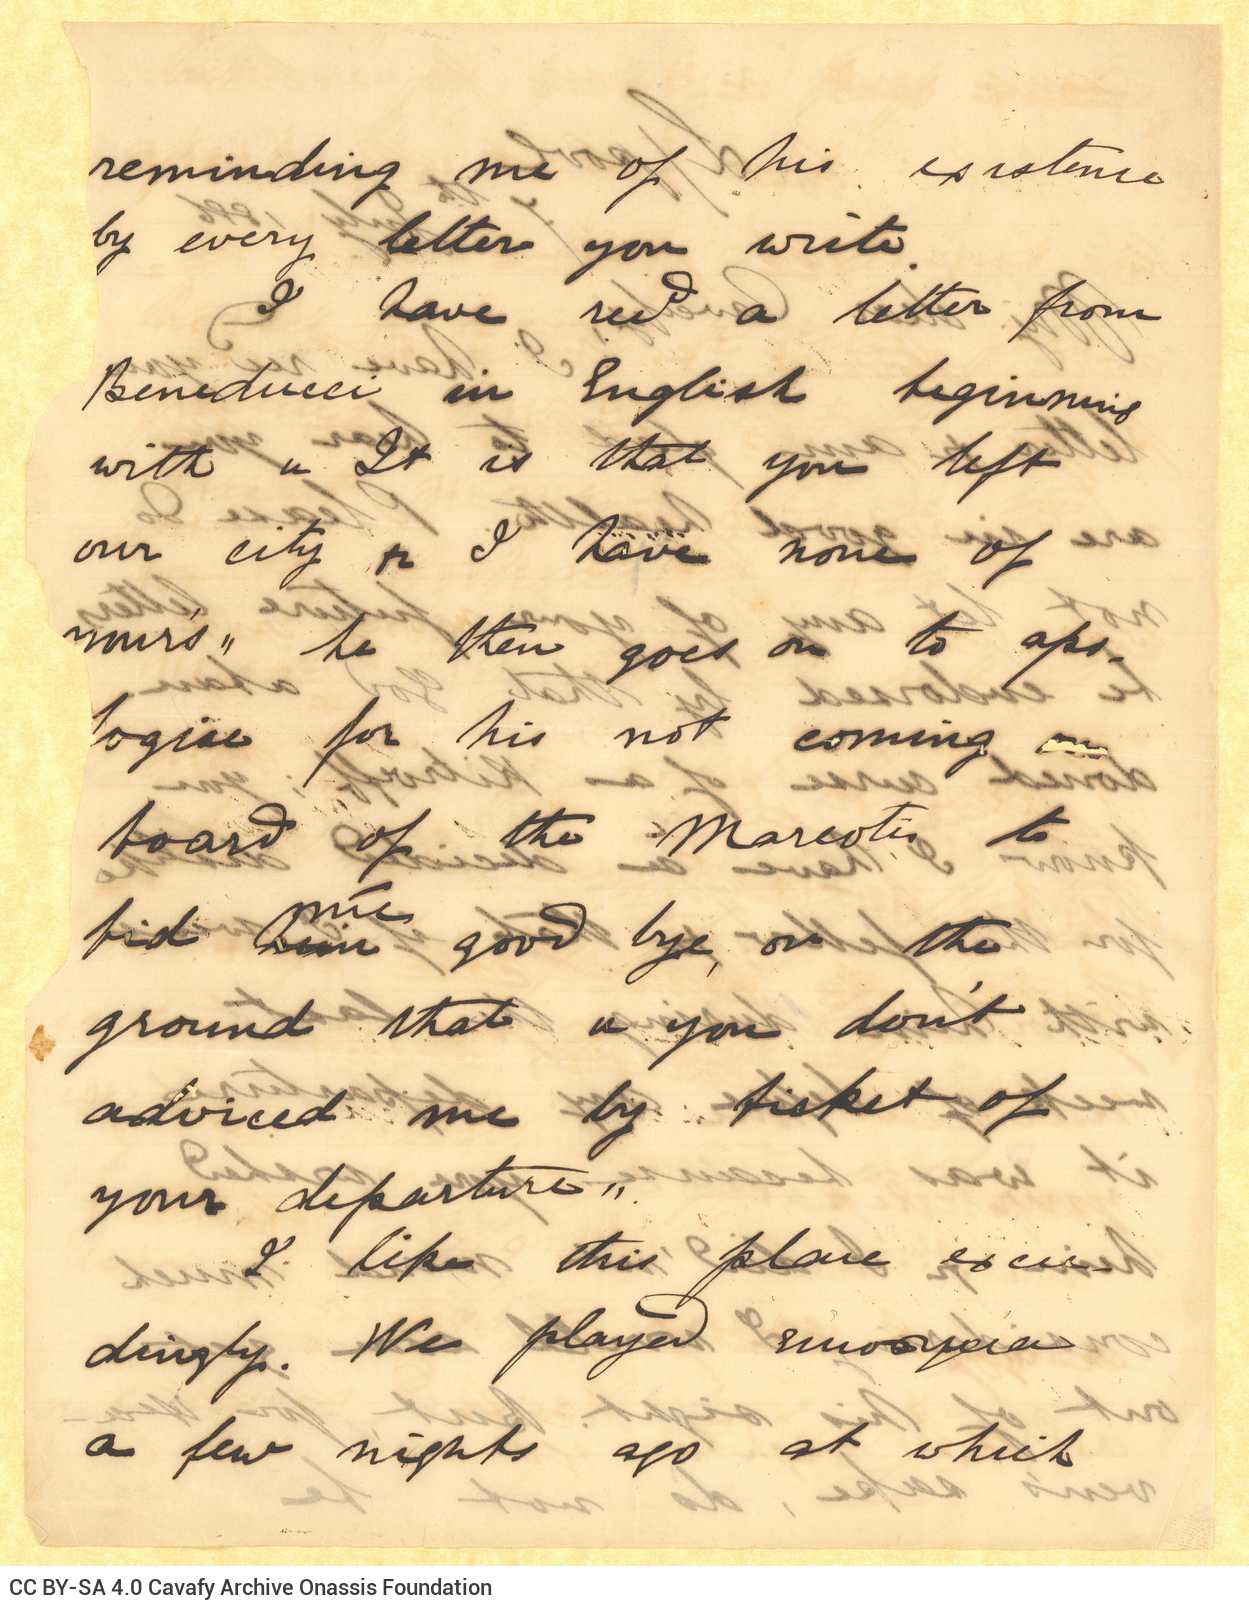 reminding me of his existence
by every letter you write.
I have recd a letter from
Beneducci in English beginning
with „ It is that you left
our city & I have none of
yours" he then goes on to apo-
logise for his not coming on
board of the Mareotis to
bid him me good bye, on the
ground that „ you don't
adviced me by ticket of
your departure".
I like this place excee-
dingly. We played
a few nights ago at which
CC BY-SA 4.0 Cavafy Archive Onassis Foundation